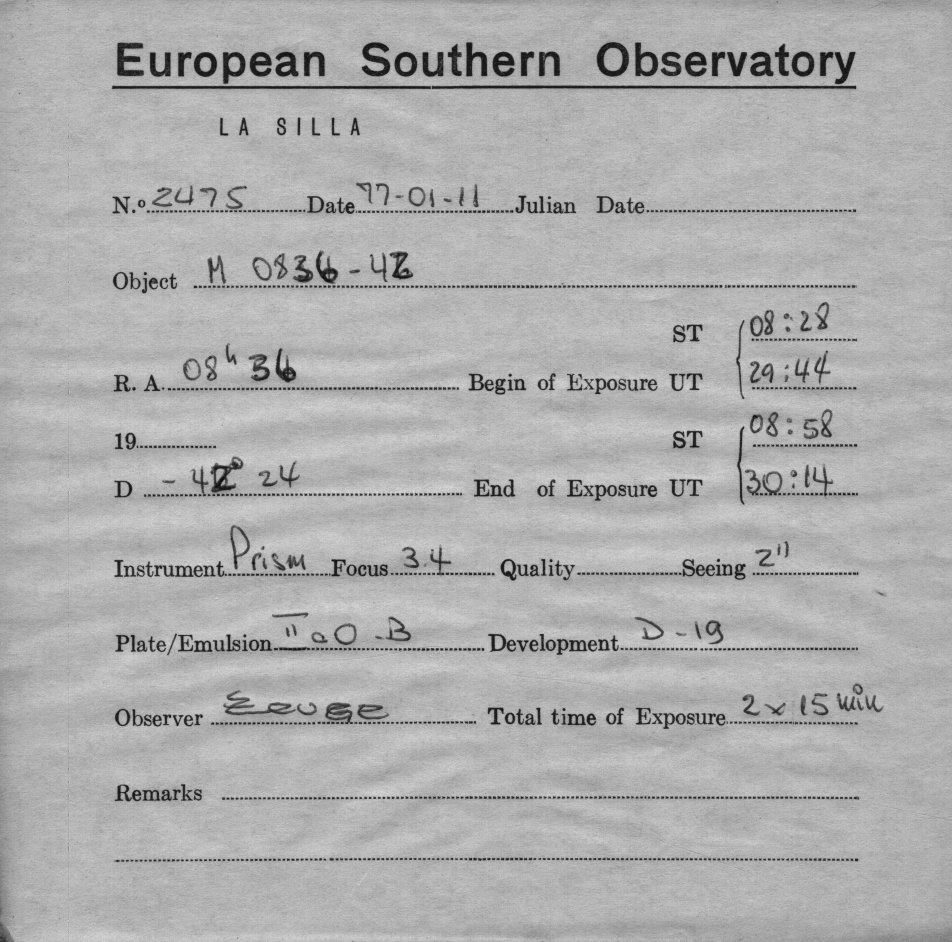 European Southern Observatory
LA SILLA
N.º 2475 Date 77-01-11 Julian Date
Object M 0836-42
ST 08:28
R. A. 08h 36 Begin of Exposure UT 29:44
19 ST 08:58
D -42° 24 End of Exposure UT 30:14
Instrument Prism Focus 3.4 Quality Seeing 2"
Plate/Emulsion IIaO-B Development D-19
Observer Total time of Exposure 2 x 15 min
Remarks